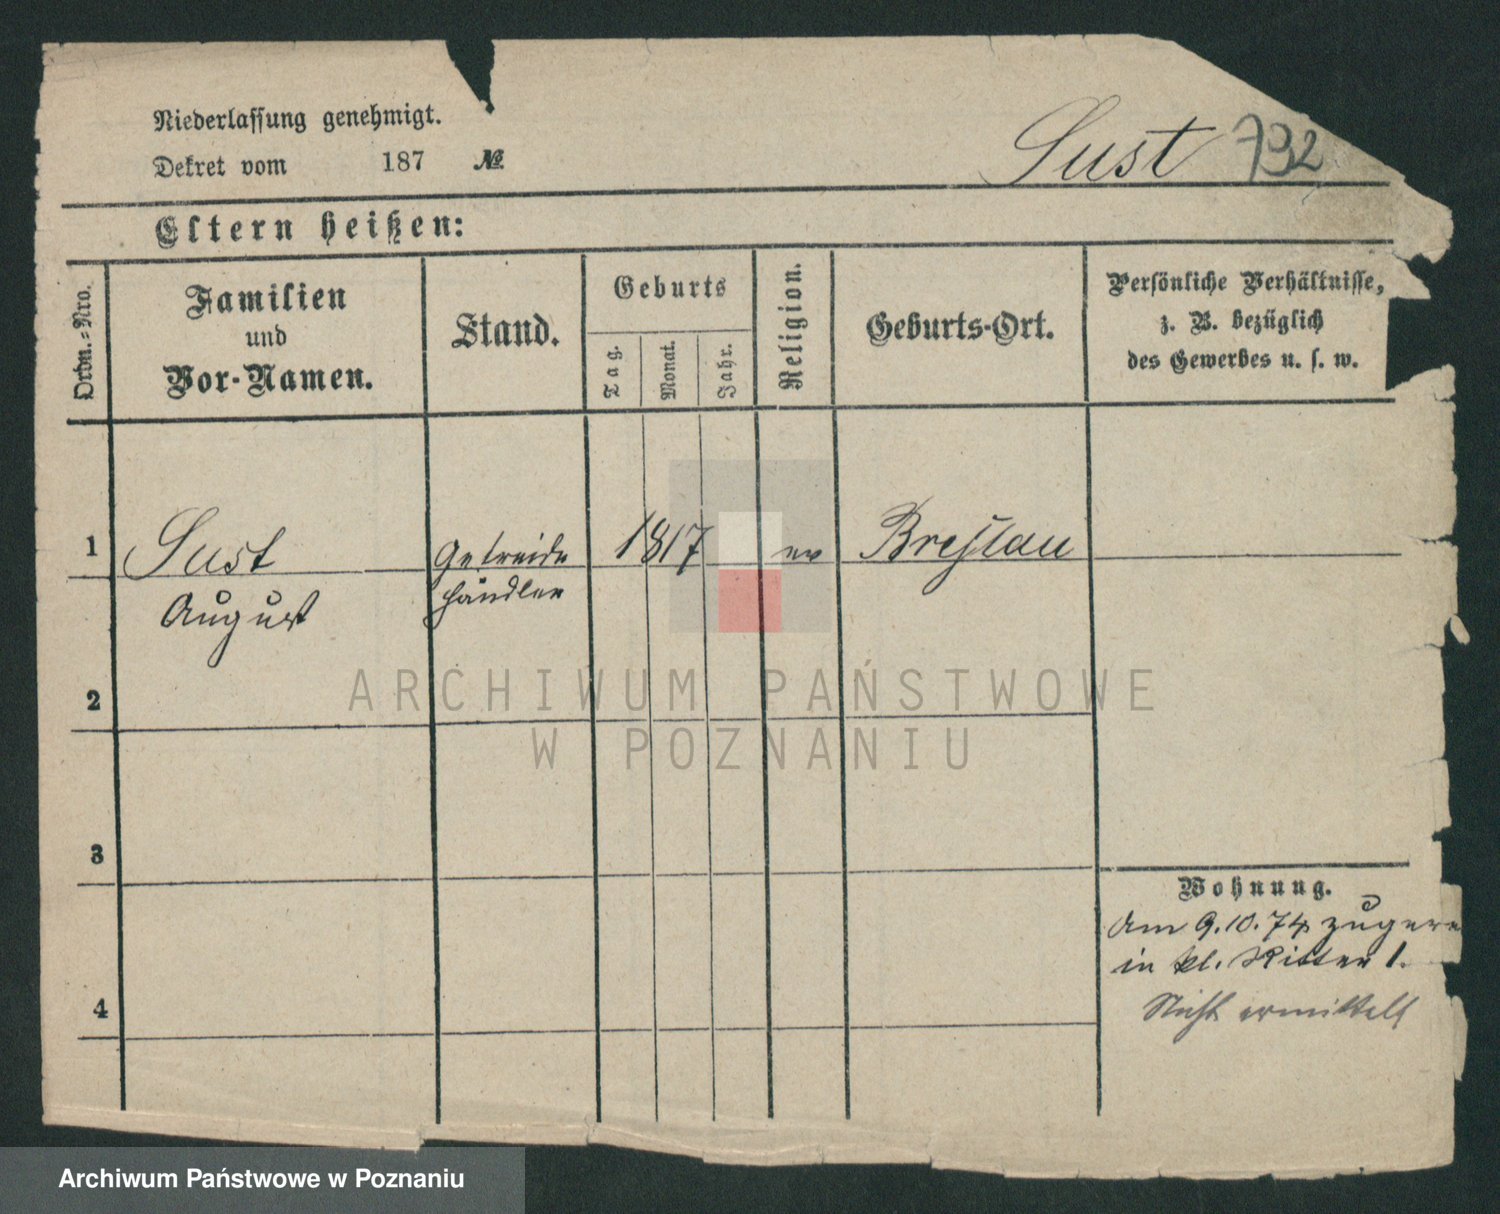 Niederlassung genehmigt.
Dekret vom 187 №
Sust 792
Eltern heißen:
Ordn.=Nro.
Familien
und
Vor-Namen.
Stand.
Geburts
Tag.
Monat.
Jahr.
Religion.
Geburts-Ort.
Persönliche Verhältnisse,
z. B. bezüglich
des Gewerbes u. s. w.
1 Sust Getreide 1817 ev Breslau
August händler
2
3
4
Wohnung.
Am 9.10.74 zugere
in kl. Ritter 1.
Nicht ermittelt
ARCHIWUM PAŃSTWOWE
W POZNANIU
Archiwum Państwowe w Poznaniu